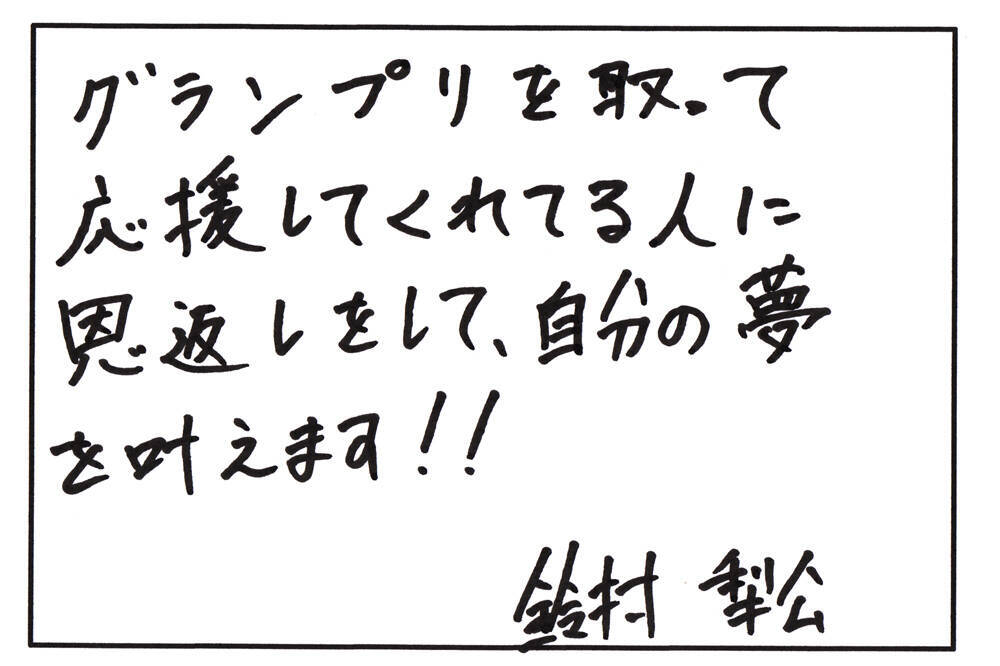 グランプリを取って
応援してくれてる人に
恩返しをして、自分の夢
を叶えます!!
鈴村 梨公